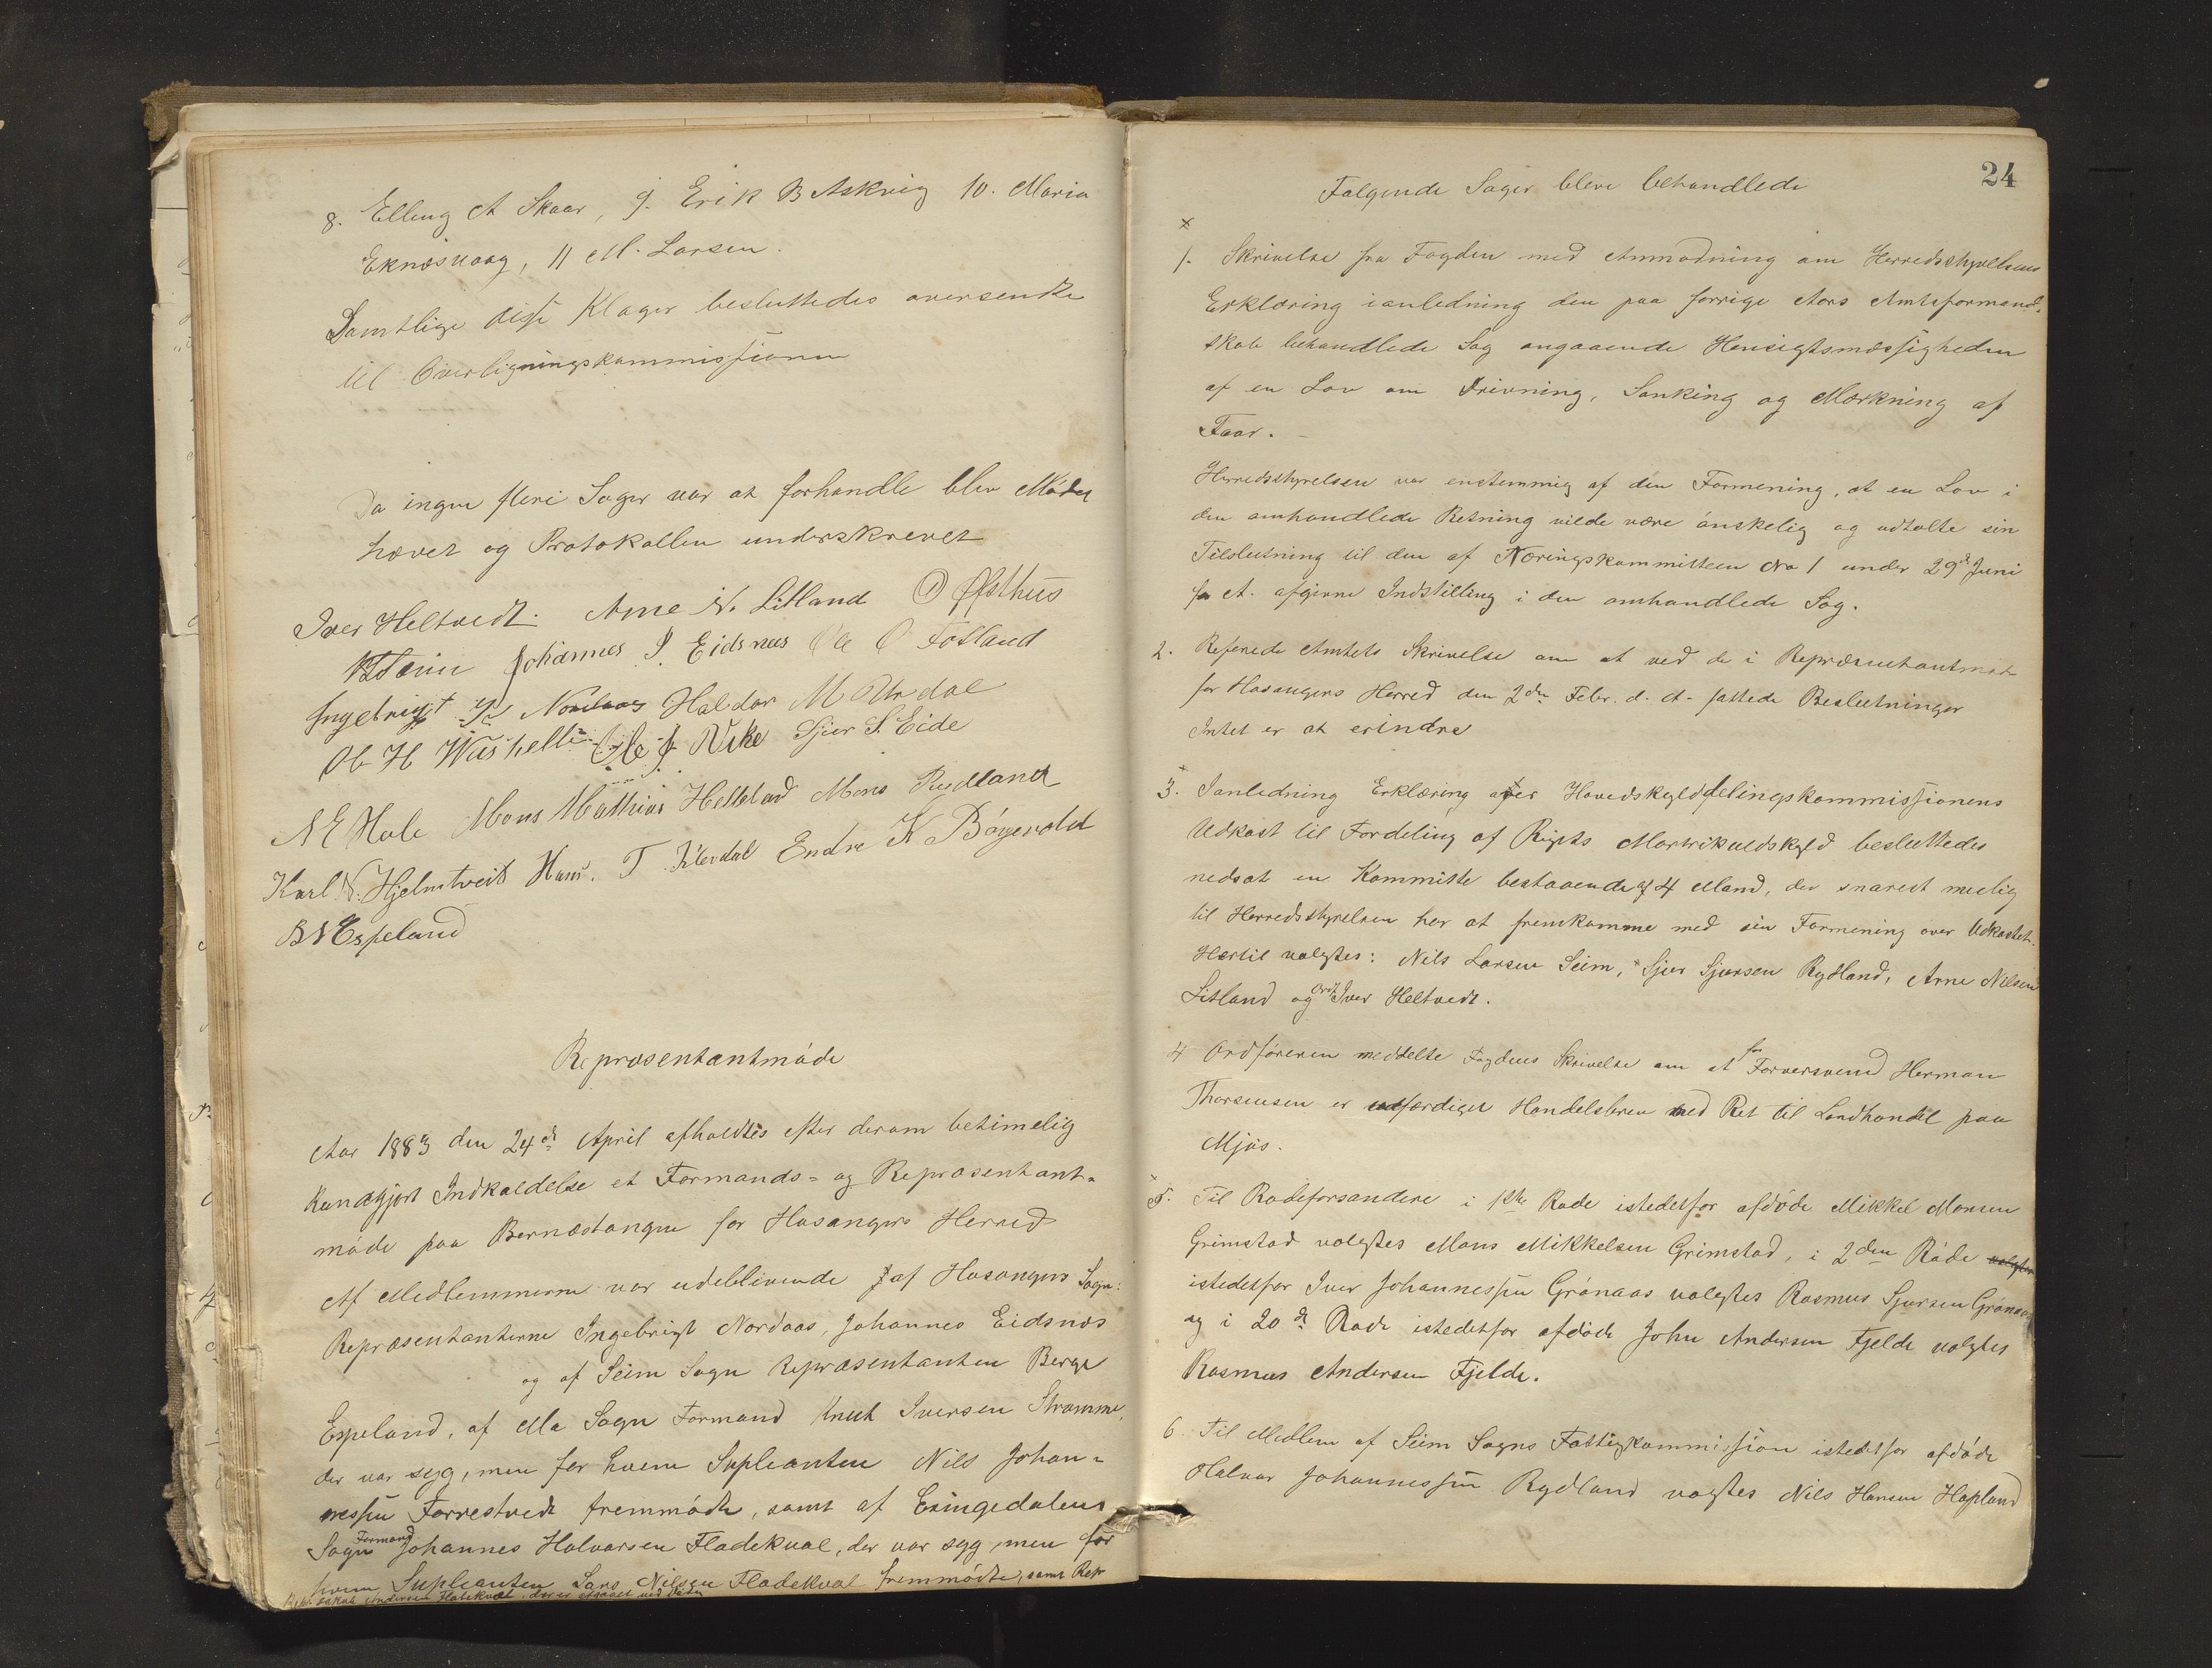 8. Elling A Skaar, 9. Erik B Askvig 10. Maria
Eknæsvaag, 11 M. Larsen.
Samtlige disse Klager besluttedes oversendte
til Overligningskommissionen
Da ingen flere Sager var at forhandle blev Mødet
hævet og Protokollen underskrevet
Iver Heltvedt. Arne N. Litland O Øfsthus
Johannes J. Eidsnes Ole O Fotland
Ingebrigt Nordaas Haldor M Urdal
Ole H Ole J. Vike Sjur S. Eide
N E Hole Mons Mathias Helleland Mons Rydland
Karl N. Hjelmtveit Hans. T. Endre K Bøyevold
B N Espeland
Repræsentantmøde
Aar 1883 den 24de April afholdtes efter derom betimelig
kundgjort Indkaldelse et Formands- og Repræsentant-
møde paa Bernæstangen for Hosangers Herred
Af Medlemmerne var udeblivende af Hosangers Sogn:
Repræsentanterne Ingebrigt Nordaas, Johannes Eidsnæs
og af Seim Sogn Repræsentanten Berge
Espeland, af Mo Sogn Formand Knut Iversen Stramme,
der var syg, men for hvem Supleanten Nils Johan-
nessen Forrestvedt fremmødte, samt af Exingedalens
Sogn Formand Johannes Halvorsen Fladekval, der var syg, men for
hvem Supleanten Lars Nilsen Fladekval fremmødte, samt Repr
Repr. Jakob Andersen Flatekval, der er afgaaet ved Døden
24
Følgende Sager bleve behandlede
x
1. Skrivelse fra Fogden med Anmodning om Herredsstyrelsens
Erklæring i anledning den paa forrige Aars Amtsformand-
skab behandlede Sag angaaende Hensigtsmæssigheden
af en Lov om Drivning, Sanking og Mærkning af
Faar. –
Herredsstyrelsen var enstemmig af den Formening, at en Lov i
den omhandlede Retning vilde være ønskelig og udtalte sin
Tilslutning til den af Næringskommitteen No 1 under 29de Juni
f. A. afgivne Indstilling i den omhandlede Sag.
2. Refererede Amtets Skrivelse om at ved de i Repræsentantmøde
for Hosangers Herred den 2den Febr. d. A. fattede Beslutninger
Intet er at erindre
x
3. I anledning Erklæring over Hovedskylddelingskommissionens
Udkast til Fordeling af Rigets Martrikuldskyld besluttedes
nedsat en Kommitte bestaaende af 4 Mand, der snarest mulig
til Herredsstyrelsen har at fremkomme med sin Formening over Udkastet.
Hertil valgtes: Nils Larsen Seim, x Sjur Sjursen Rydland, Arne Nilsen
Litland og Ordf Iver Heltvedt.
4 Ordføreren meddelte Fogdens Skrivelse om at for Farversvend Herman
Thorsensen er udfærdiget Handelsbrev med Ret til Landhandel paa
Mjøs.
x
5. Til Rodeforsandere i 1ste Rode istedetfor afdøde Mikkel Monsen
Grimstad valgtes Mons Mikkelsen Grimstad, i 2den Rode valgtes
istedetfor Iver Johannessen Grønaas valgtes Rasmus Sjursen Grønaas
og i 20de Rode istedetfor afdøde John Andersen Fjelde valgtes
Rasmus Andersen Fjelde.
6 Til Medlem af Seim Sogns Fattigkommission istedetfor afdøde
Halvor Johannessen Rydland valgtes Nils Hansen Hopland